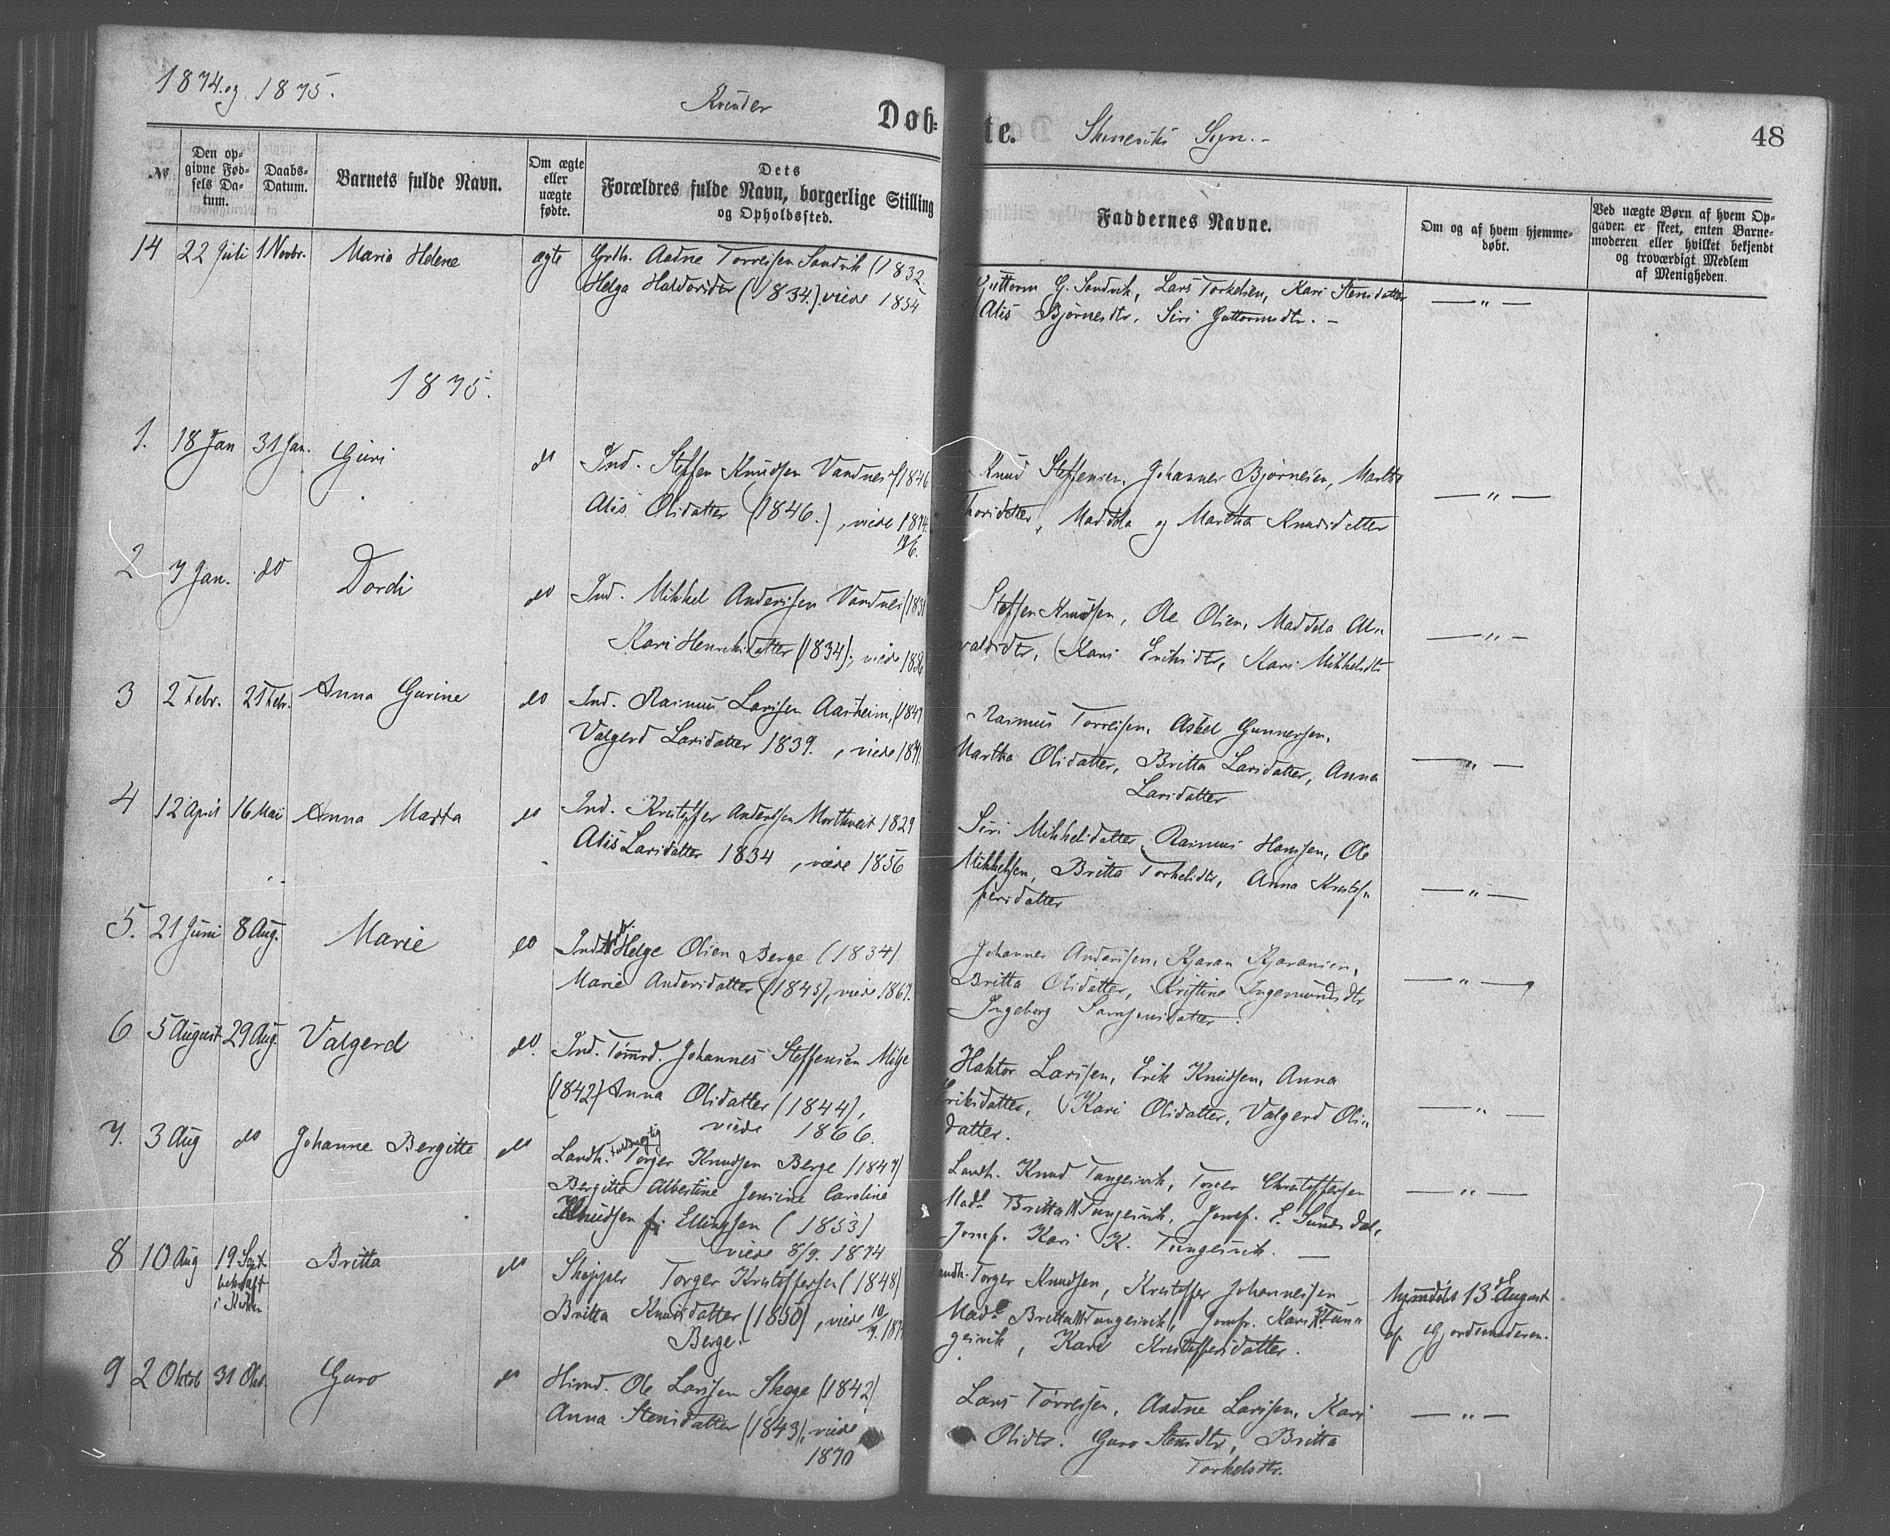 1874 og 1875.
Kvinder
Døb-
te.
Skoneviks Sogn.
48
№
Den op-
givne Fød-
sels Da-
tum.
Daabs-
Datum.
Barnets fulde Navn.
Om ægte
eller
uægte
fødte.
Dets
Forældres fulde Navn, borgerlige Stilling
og Opholdssted.
Faddernes Navne.
Om og af hvem hjemme-
døbt.
Ved uægte Børn af hvem Op-
gaven er skeet, enten Barne-
moderen eller hvilket bekjendt
og troværdigt Medlem
af Menigheden.
14 22 Juli 1 Novbr. Maria Helene ægte
Aadne Torreisen Sandvik (1832.
Helga Haldorsdtr (1834.) viede 1854
Guttorm G. Sandvik, Lars Torkelsen, Kari Stensdatter
Alis Bjørnesdtr, Siri Guttormsdtr. — — " —
1875.
1. 18 Jan 31 Jan. Guri do
Ind. Steffen Knudsen Vandnes (1846
Alis Olsdatter (1846.), viede 1874.
19/6.
Knud Steffensen, Johannes Bjørnesen, Martha
Thorsdatter, Maddela og Martha Knudsdatter — " —
2 7 Jan. do Dordi do
Ind. Mikkel Andersen Vandnes
Kari Henriksdatter (1834); viede
Steffen Knudsen, Ole Olsen, Maddela
Kari Eriksdtr, Kari Mikkelsdtr — " —
3 2 Febr. 21 Febr. Anna Gurine do
Ind. Rasmus Larsen Aarheim,
Valgerd Larsdatter 1839., viede
Rasmus Torreisen, Askel Gunnersen,
Martha Olsdatter, Britta Larsdatter, Anna
Larsdatter — " —
4 12 April 16 Mai Anna Marta do
Ind. Kristoffer Anderssen Mortkveit 1829
Alis Larsdatter 1834, viede 1856
Siri Mikkelsdatter, Rasmus Hanssen, Ole
Mikkelsen, Britta Torkelsdtr, Anna Kristof-
fersdatter — " —
5. 21 Juni 8 Aug. Marie do
Ind. Helge Olsen Berge (1834)
Marie Andersdatter (1843), viede 1867.
Johannes Andersen, Kjaran Kjaransen,
Britta Olsdatter, Kristine Ingemundsdtr
Ingeborg Samsonsdatter. — " —
6 5 August 29 Aug. Valgerd do.
Ind. Tømrd. Johannes Steffensen Milje
(1842) Anna Olsdatter (1844),
viede 1866.
Haktor Larsen, Erik Knudsen, Anna
Eriksdatter, Kari Olsdatter, Valgerd Ols-
datter. — " —
7. 3 Aug do Johanne Bergitte do
Landh. Torger Knudsen Berge (1847)
Bergitte Albertine Jensine Caroline
Knudsen f. Ellingsen (1853)
viede 8/9. 1874
Landh. Knud Tungesvik, Torger Christoffersen
Mad. Britta Tungesvik, Jomf. E. Sundsdal,
Jomf. Kari K. Tungesvik. — — " —
8 10 Aug 19 Sept. Britta do
bekræft
i Kirken
Skipper Torger Kristoffersen (1848)
Britta Knudsdatter (1850), viede
Berge.
Landh. Torger Knudsen, Kristoffer Johannessen
Mad. Britta Tungesvik, Jomf. Kari K. Tun-
gesvik, Kari Kristoffersdatter.
hjmdøbt 13de August
af Gjordemoderen.
9 2 Oktob 31 Okt. Guro do
Husmd. Ole Larsen Skoge (1842)
Anna Stensdatter (1843), viede
1870
Lars Torreisen, Aadne Larsen, Kari
Olsdtr. Guro Stensdtr, Britta
Torkelsdtr. — " —